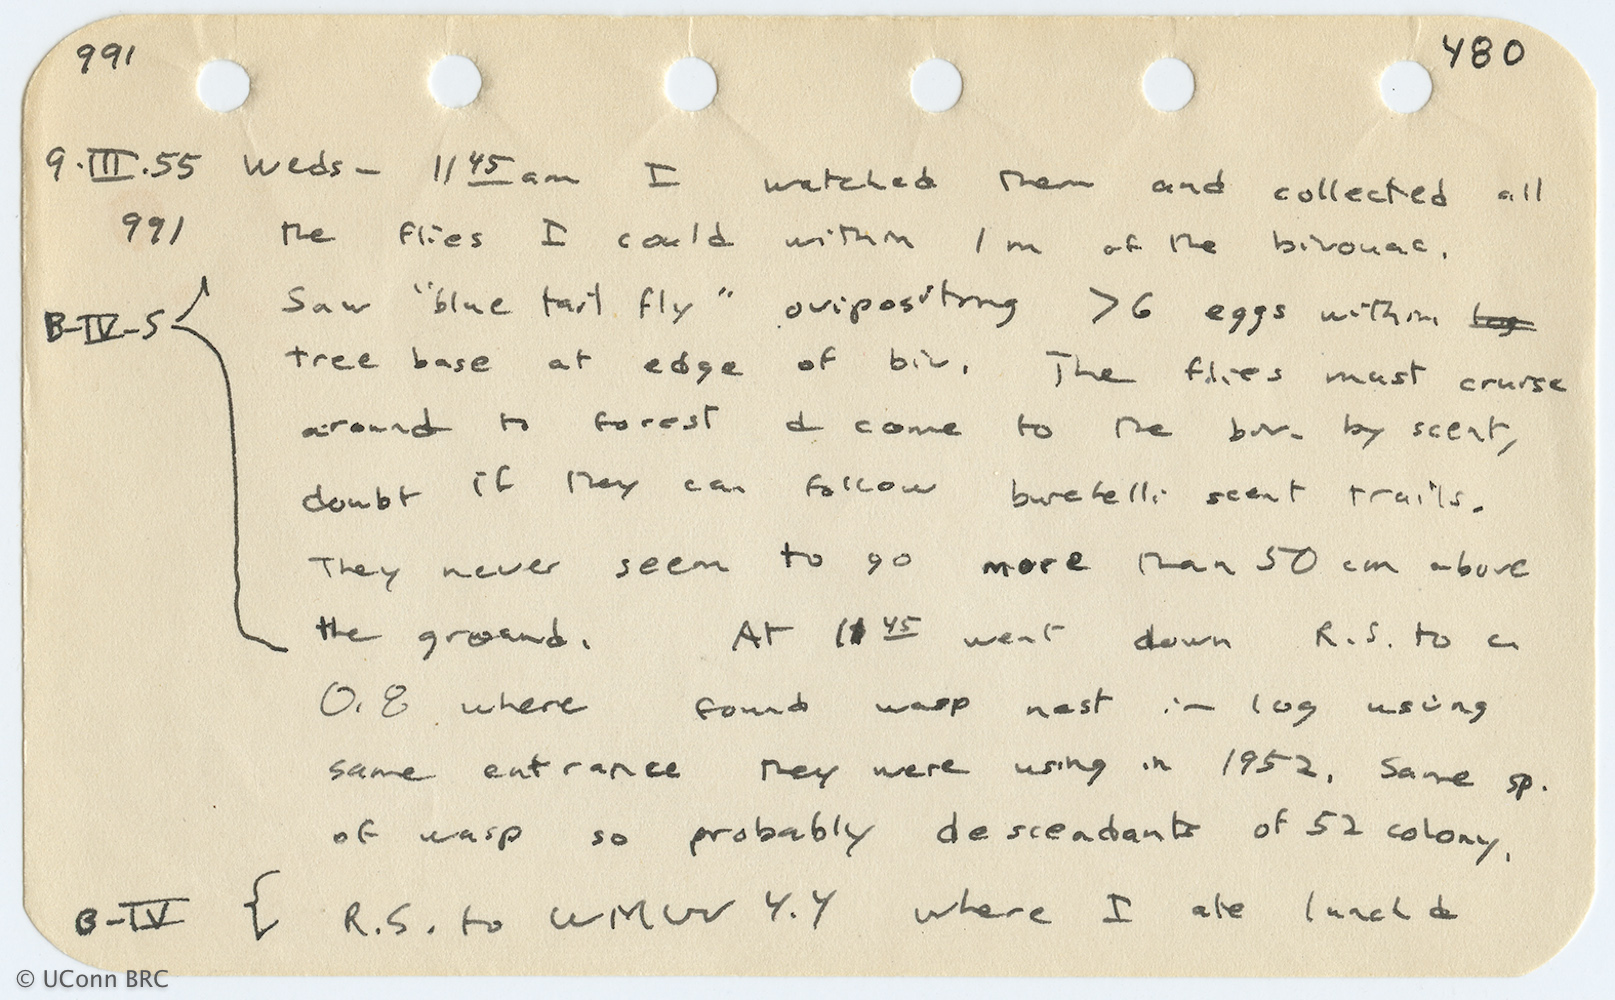 991 480
9.III.55 Weds- 11 45 am I watched them and collected all
991 the flies I could within 1 m of the bivouac.
Saw "blue tail fly" ovipositing >6 eggs within log
B-IV-5
tree base at edge of biv. The flies must cruise
around to forest & come to the biv. by scent,
doubt if they can follow burchelli scent trails.
They never seem to go more than 50 cm above
the ground. At 11 45 went down R.S. to a
0.8 where found wasp nest in log using
same entrance they were using in 1952. Same sp.
of wasp so probably descendants of 52 colony.
B-IV { R.S. to WMW 4.4 where I ate lunch &
© UConn BRC